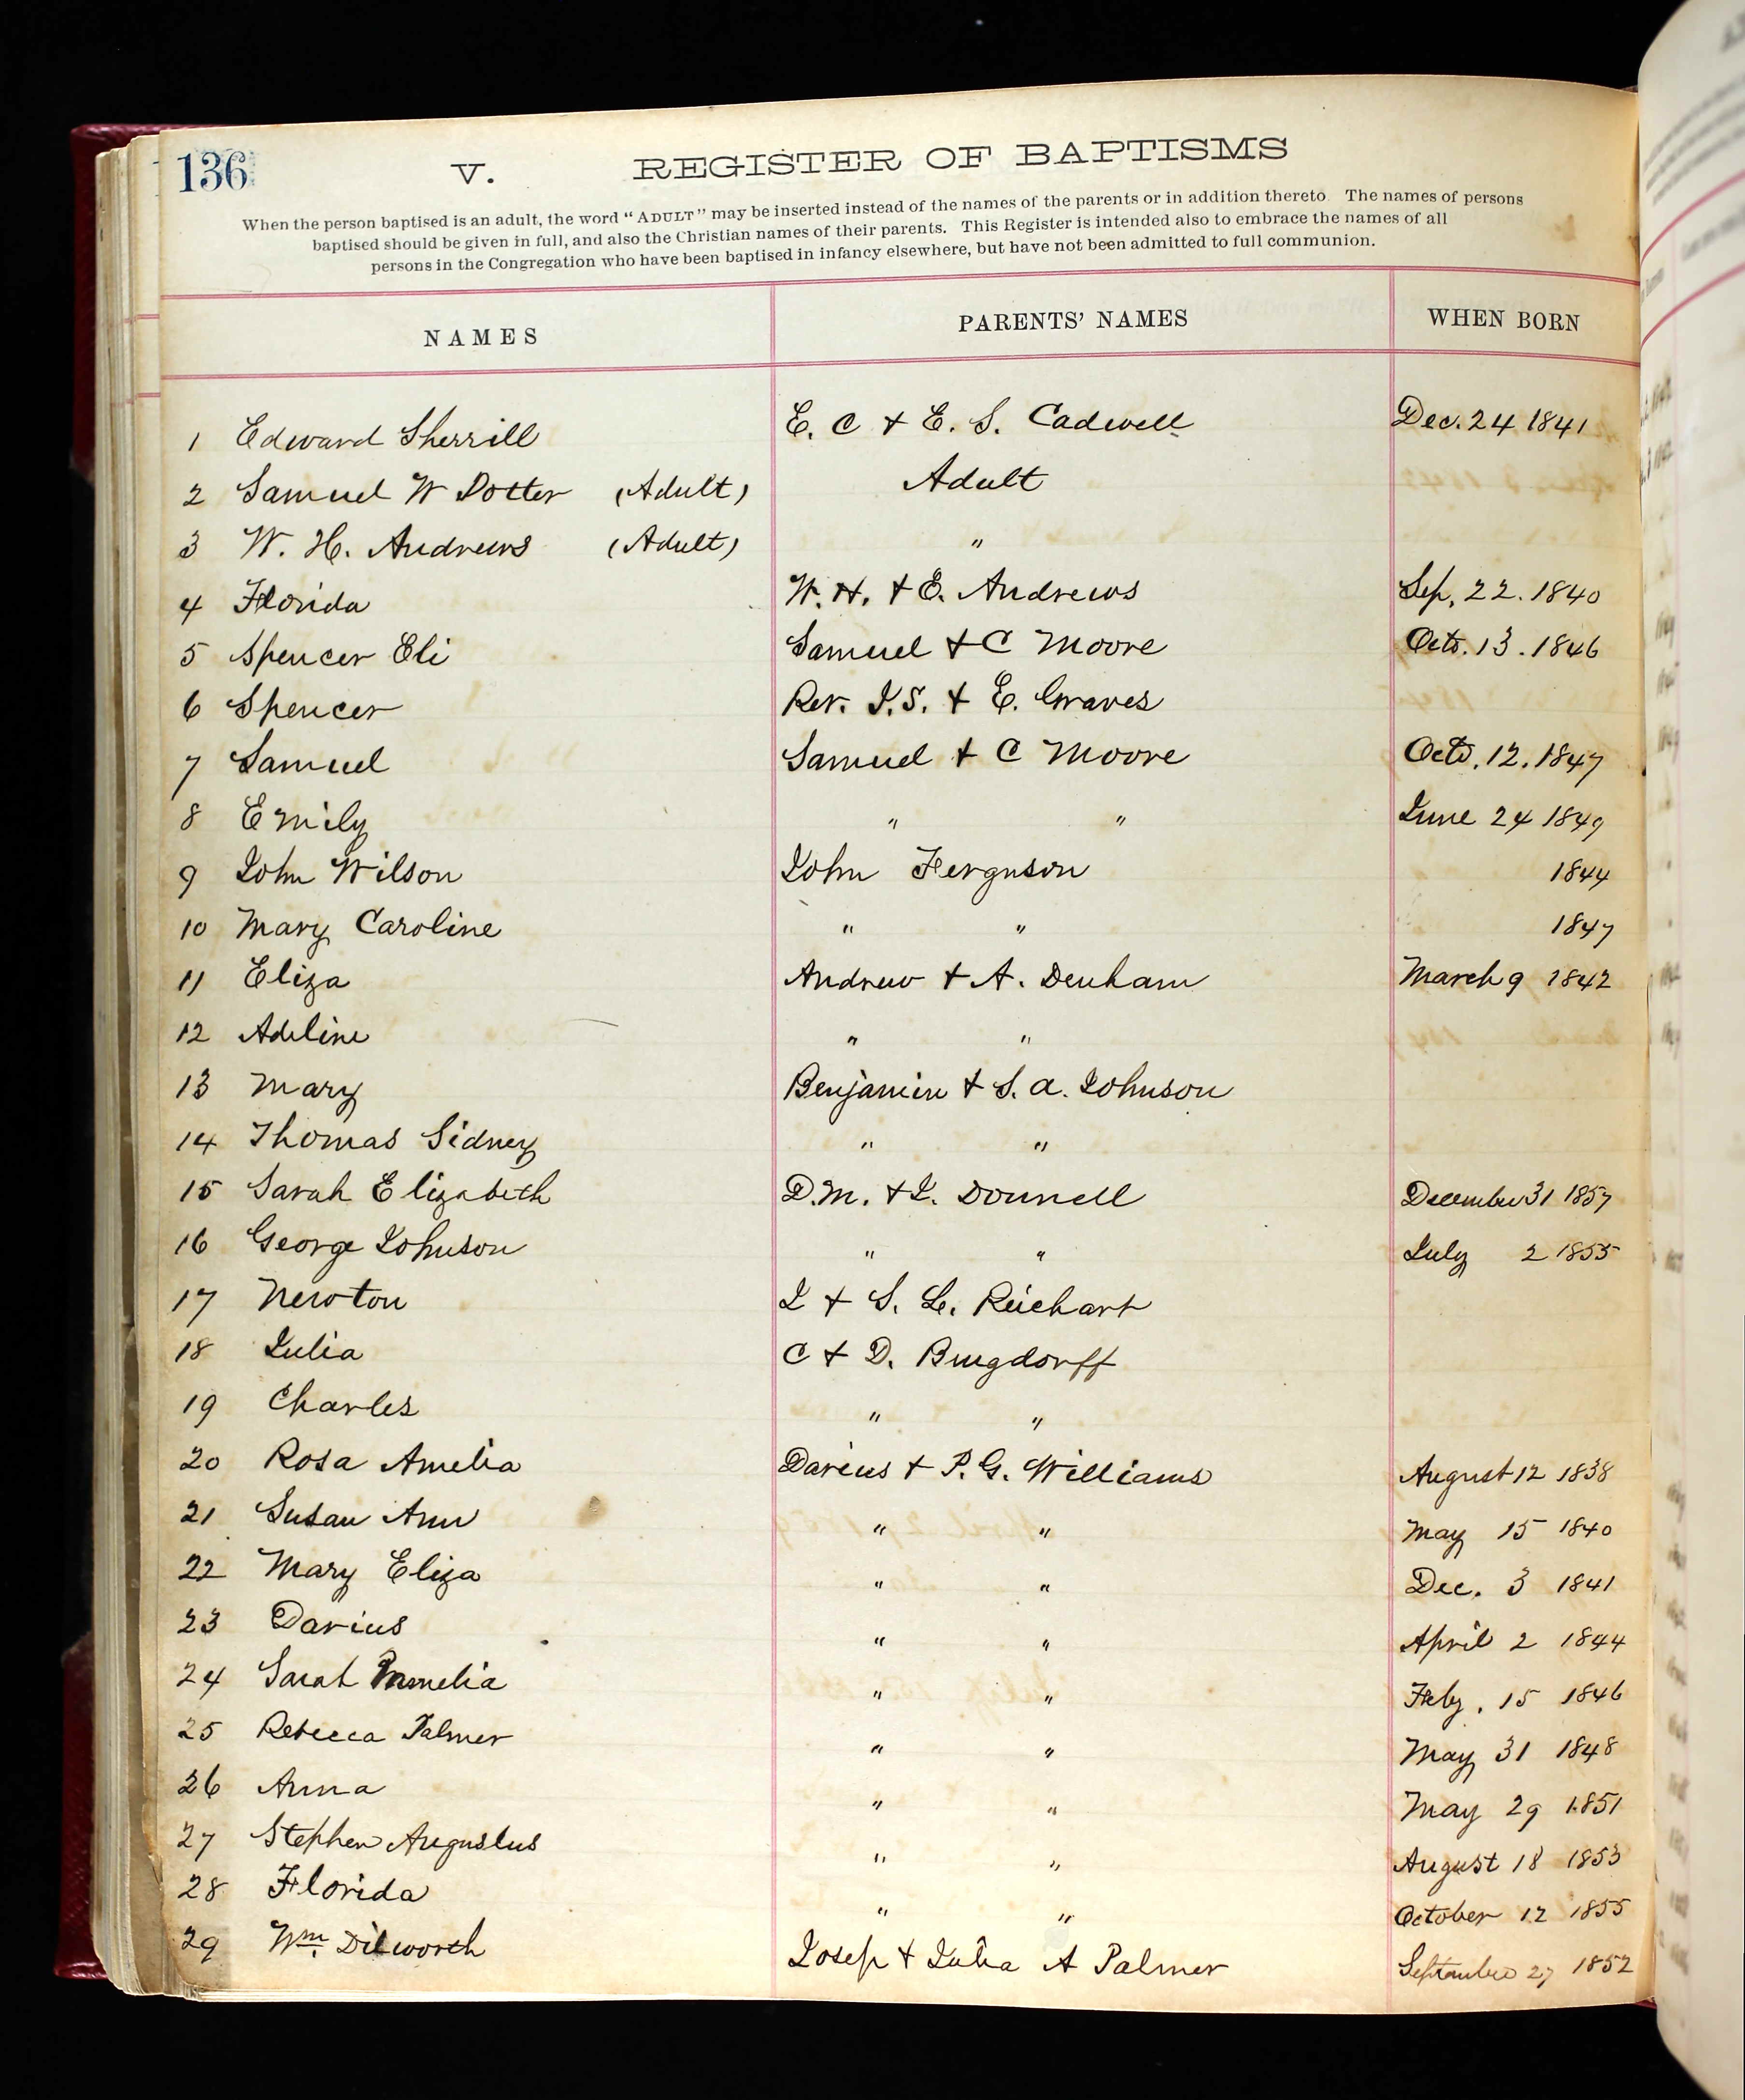 136 V. REGISTER OF BAPTISMS
When the person baptised is an adult, the word "ADULT" may be inserted instead of the names of the parents or in addition thereto. The names of persons
baptised should be given in full, and also the Christian names of their parents. This Register is intended also to embrace the names of all
persons in the Congregation who have been baptised in infancy elsewhere, but have not been admitted to full communion.
NAMES PARENTS' NAMES WHEN BORN
1 Edward Sherrill E. C & E. S. Cadwell Dec. 24 1841
2 Samuel W Dotter (Adult) Adult
3 W. H. Andrews (Adult) "
4 Florida W. H. & E. Andrews Sep. 22. 1840
5 Spencer Eli Samuel & C Moore Octo. 13. 1846
6 Spencer Rev. J. S. & E. Graves
7 Samuel Samuel & C Moore Octo. 12. 1847
8 Emily " " June 24 1849
9 John Wilson John Ferguson 1844
10 Mary Caroline " " 1847
11 Eliza Andrew & A. Denham March 9 1842
12 Adeline " "
13 Mary Benjamin & S. A. Johnson
14 Thomas Sidney " "
15 Sarah Elizabeth D. M. & J. Donnell December 31 1857
16 George Johnson " " July 2 1855
17 Newton J & S. L. Reichart
18 Julia C & D. Bugdorff
19 Charles " "
20 Rosa Amelia Darius & P. G. Williams August 12 1838
21 Susan Ann " " May 15 1840
22 Mary Eliza " " Dec. 3 1841
23 Darius " " April 2 1844
24 Sarah Pamelia " " Feby. 15 1846
25 Rebecca Palmer " " May 31 1848
26 Anna " " May 29 1851
27 Stephen Augustus " " August 18 1853
28 Florida " " October 12 1855
29 Wm. Dilworth Josep & Julia A Palmer September 27 1852